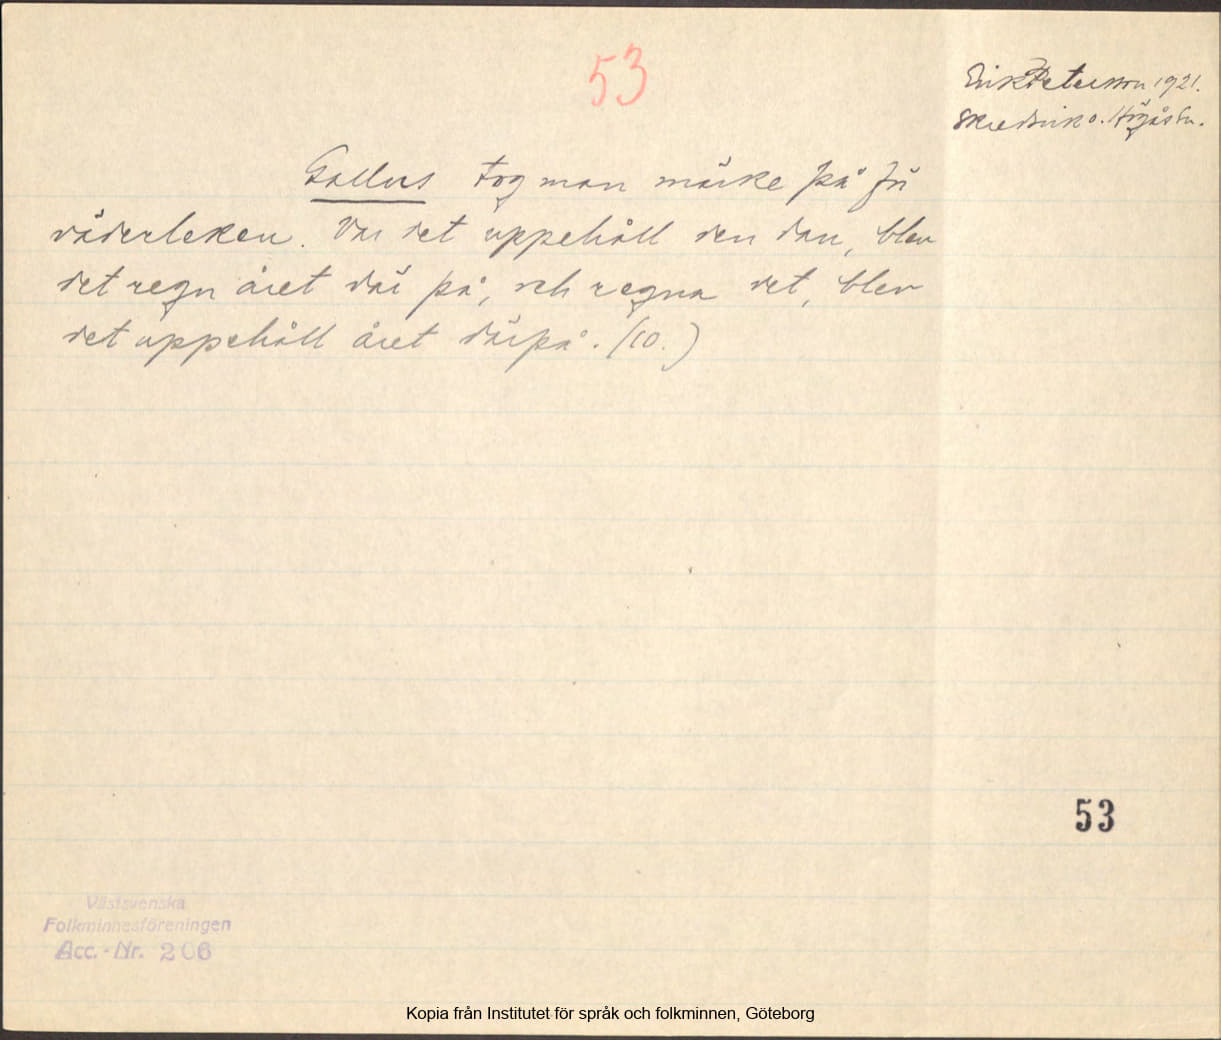 53
Erik Peterson 1921.
Skredsvik o. Högås sn.
Gallus tog man märke på fů
väderleken. Var det uppehåll den dan, blev
det regn året där på, och regna det, blev
det uppehåll året därpå. (10.)
53
Västsvenska
Folkminnesföreningen
Acc.-Nr. 206
Kopia från Institutet för språk och folkminnen, Göteborg